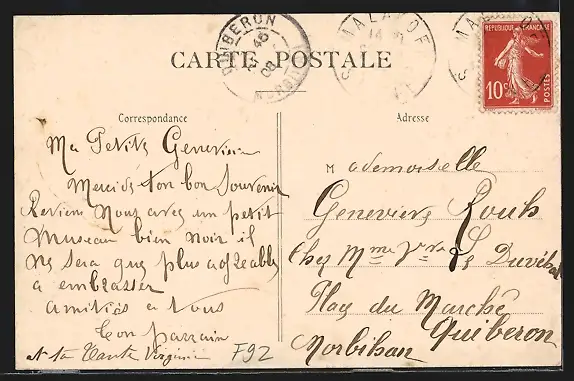 CARTE POSTALE
Correspondance
Ma Petite Genevieve
Merci de ton bon Souvenir
Reviens Nous avec un petit
museau bien noir il
ne sera que plus agreable
a embrasser
amities a vous
ton parrain
et ta tante Virginie F92
Adresse
Mademoiselle
Genevieve
Chez Mme Vve Le
Place du Marché
Quiberon
Morbihan
QUIBERON
MORBIHAN
MALAKOFF
MALAKOFF
REPUBLIQUE FRANÇAISE
10c
POSTES